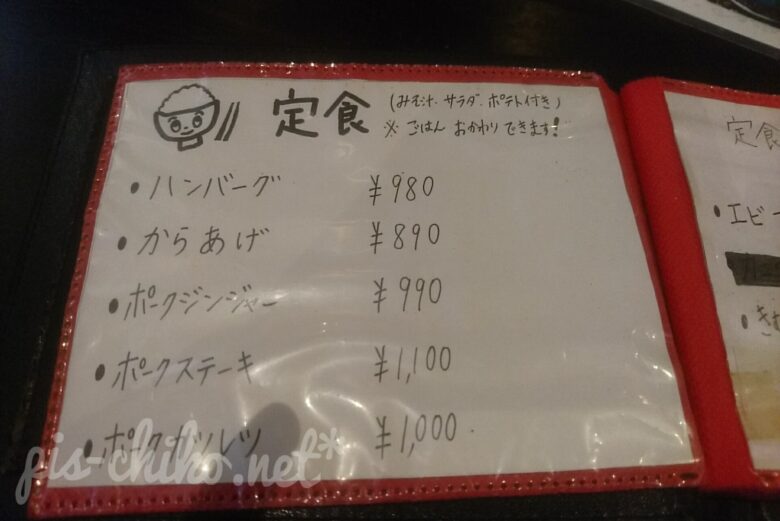 定食 (みそ汁、サラダ、ポテト付き)
※ ごはん おかわり できます!
• ハンバーグ ¥980
• からあげ ¥890
• ポークジンジャー ¥990
• ポークステーキ ¥1,100
• ポークカツレツ ¥1,000
pis-chiko.net*
定食
• エビ